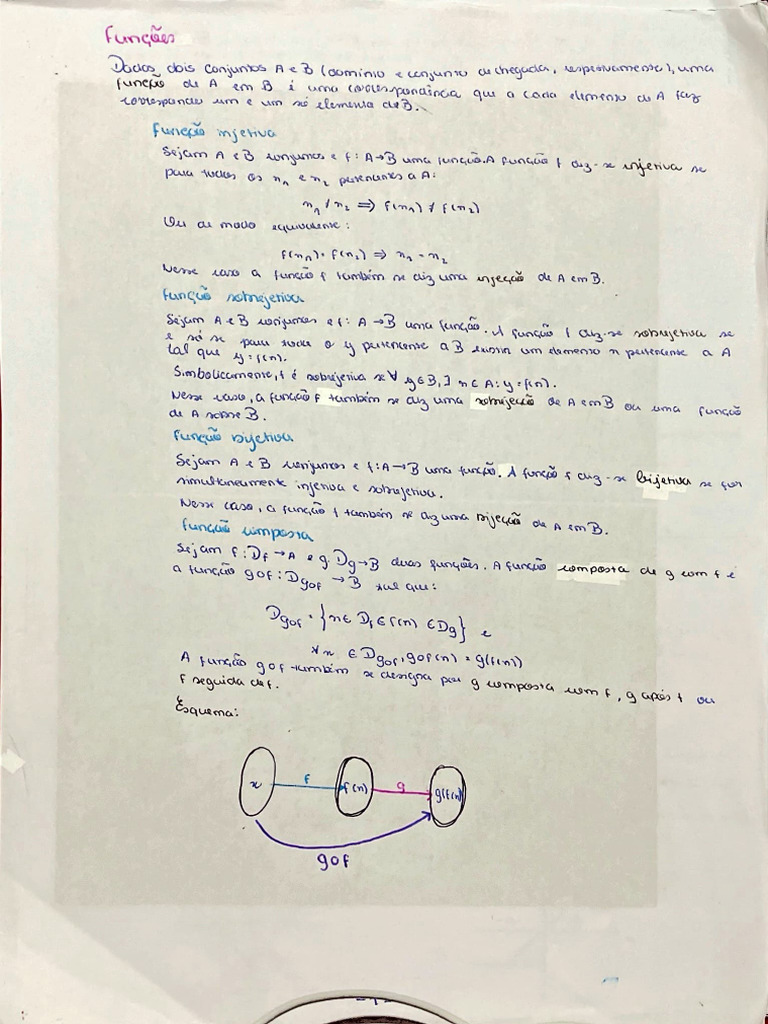 Funções
Dados dois conjuntos A e B (domínio e conjunto de chegada, respetivamente), uma
função de A em B é uma correspondência que a cada elemento de A faz
corresponder um e um só elemento de B.
Função injetiva
Sejam A e B conjuntos e f: A→B uma função. A função f diz-se injetiva se
para todos os x₁ e x₂ pertencentes a A:
x₁ ≠ x₂ ⟹ f(x₁) ≠ f(x₂)
Ou de modo equivalente:
f(x₁) = f(x₂) ⟹ x₁ = x₂
Nesse caso a função f também se diz uma injeção de A em B.
Função sobrejetiva
Sejam A e B conjuntos e f: A→B uma função. A função f diz-se sobrejetiva se
e só se para todo o y pertencente a B existir um elemento x pertencente a A
tal que y = f(x).
Simbolicamente, f é sobrejetiva se ∀ y∈B, ∃ x∈A: y = f(x).
Nesse caso, a função f também se diz uma sobrejeção de A em B ou uma função
de A sobre B.
Função Bijetiva
Sejam A e B conjuntos e f: A→B uma função. A função f diz-se bijetiva se for
simultaneamente injetiva e sobrejetiva.
Nesse caso, a função f também se diz uma bijeção de A em B.
Função composta
Sejam f: Df → A e g: Dg → B duas funções. A função composta de g com f é
a função gof: Dgof → B tal que:
Dgof = {x ∈ Df ∈ f(x) ∈ Dg} e
∀x ∈ Dgof, gof(x) = g(f(x))
A função gof também se designa por g composta com f, g após f ou
f seguida de f.
Esquema:
f g
x f(x) g(f(x)
gof